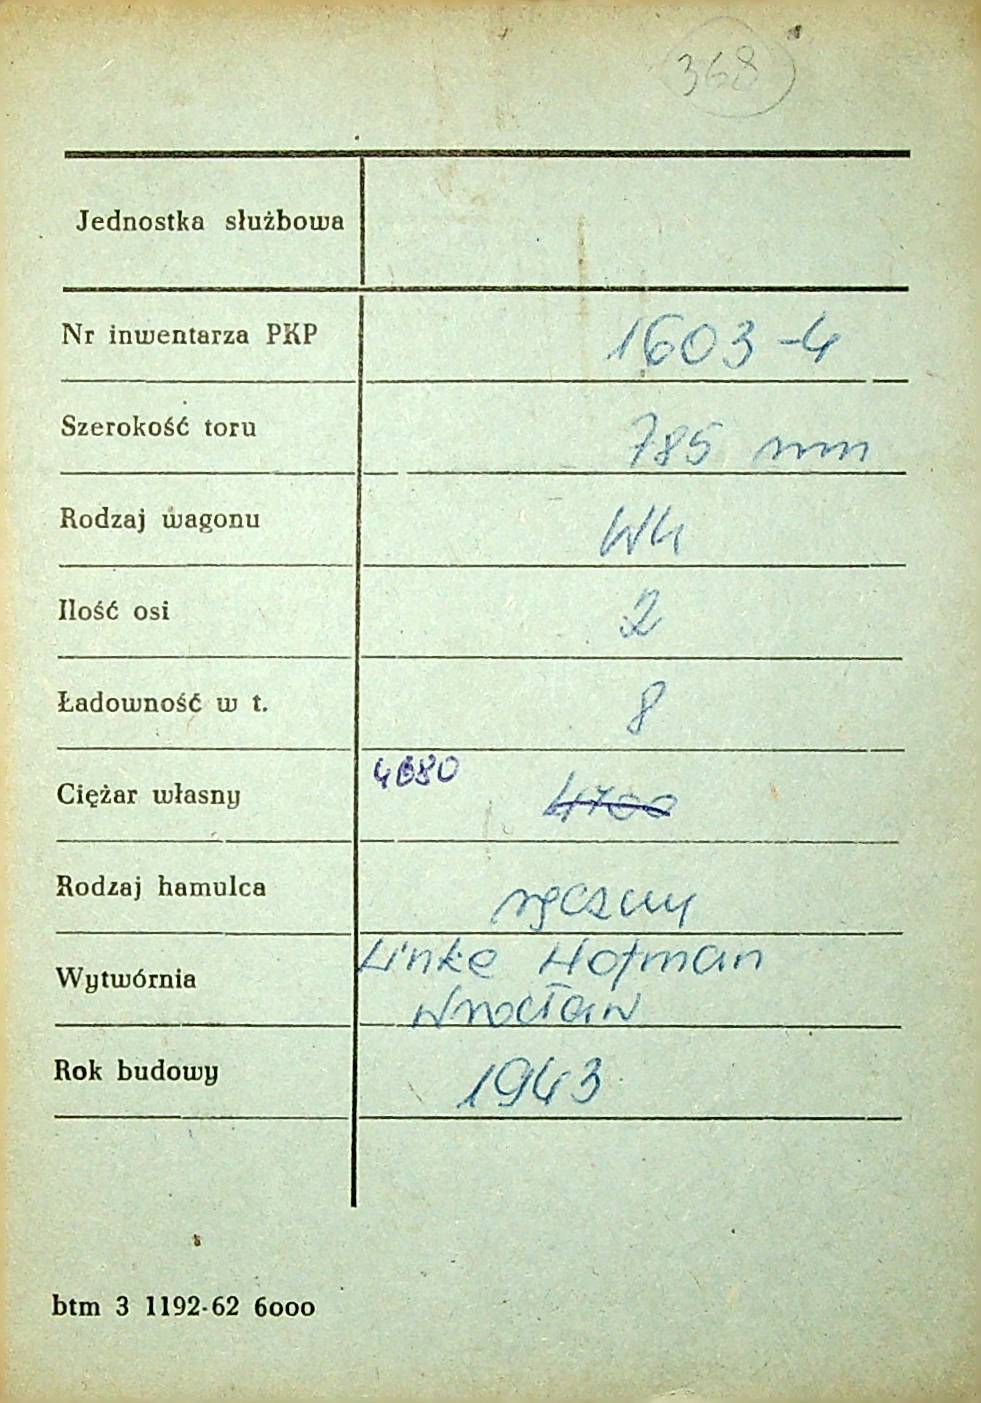 368
Jednostka służbowa
Nr inwentarza PKP 1603-4
Szerokość toru 785 mm
Rodzaj wagonu Wh
Ilość osi 2
Ładowność w t. 8
Ciężar własny 4680 4700
Rodzaj hamulca ręczny
Wytwórnia Linke Hofman
Wrocław
Rok budowy 1943
btm 3 1192-62 6000